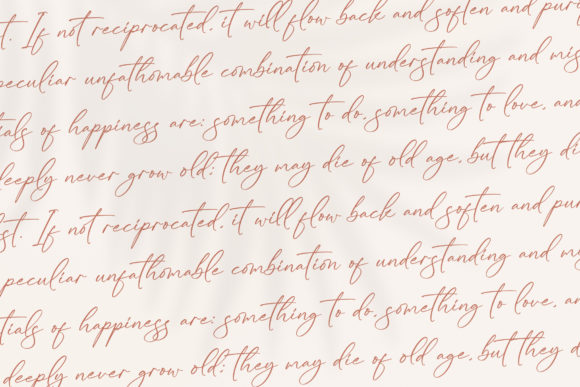 t. If not reciprocated, it will flow back and soften and pur
peculiar unfathomable combination of understanding and mis
tials of happiness are: something to do, something to love, an
deeply never grow old; they may die of old age, but they di
st. If not reciprocated, it will flow back and soften and pur
peculiar unfathomable combination of understanding and mi
tials of happiness are: something to do, something to love, an
deeply never grow old; they may die of old age, but they d